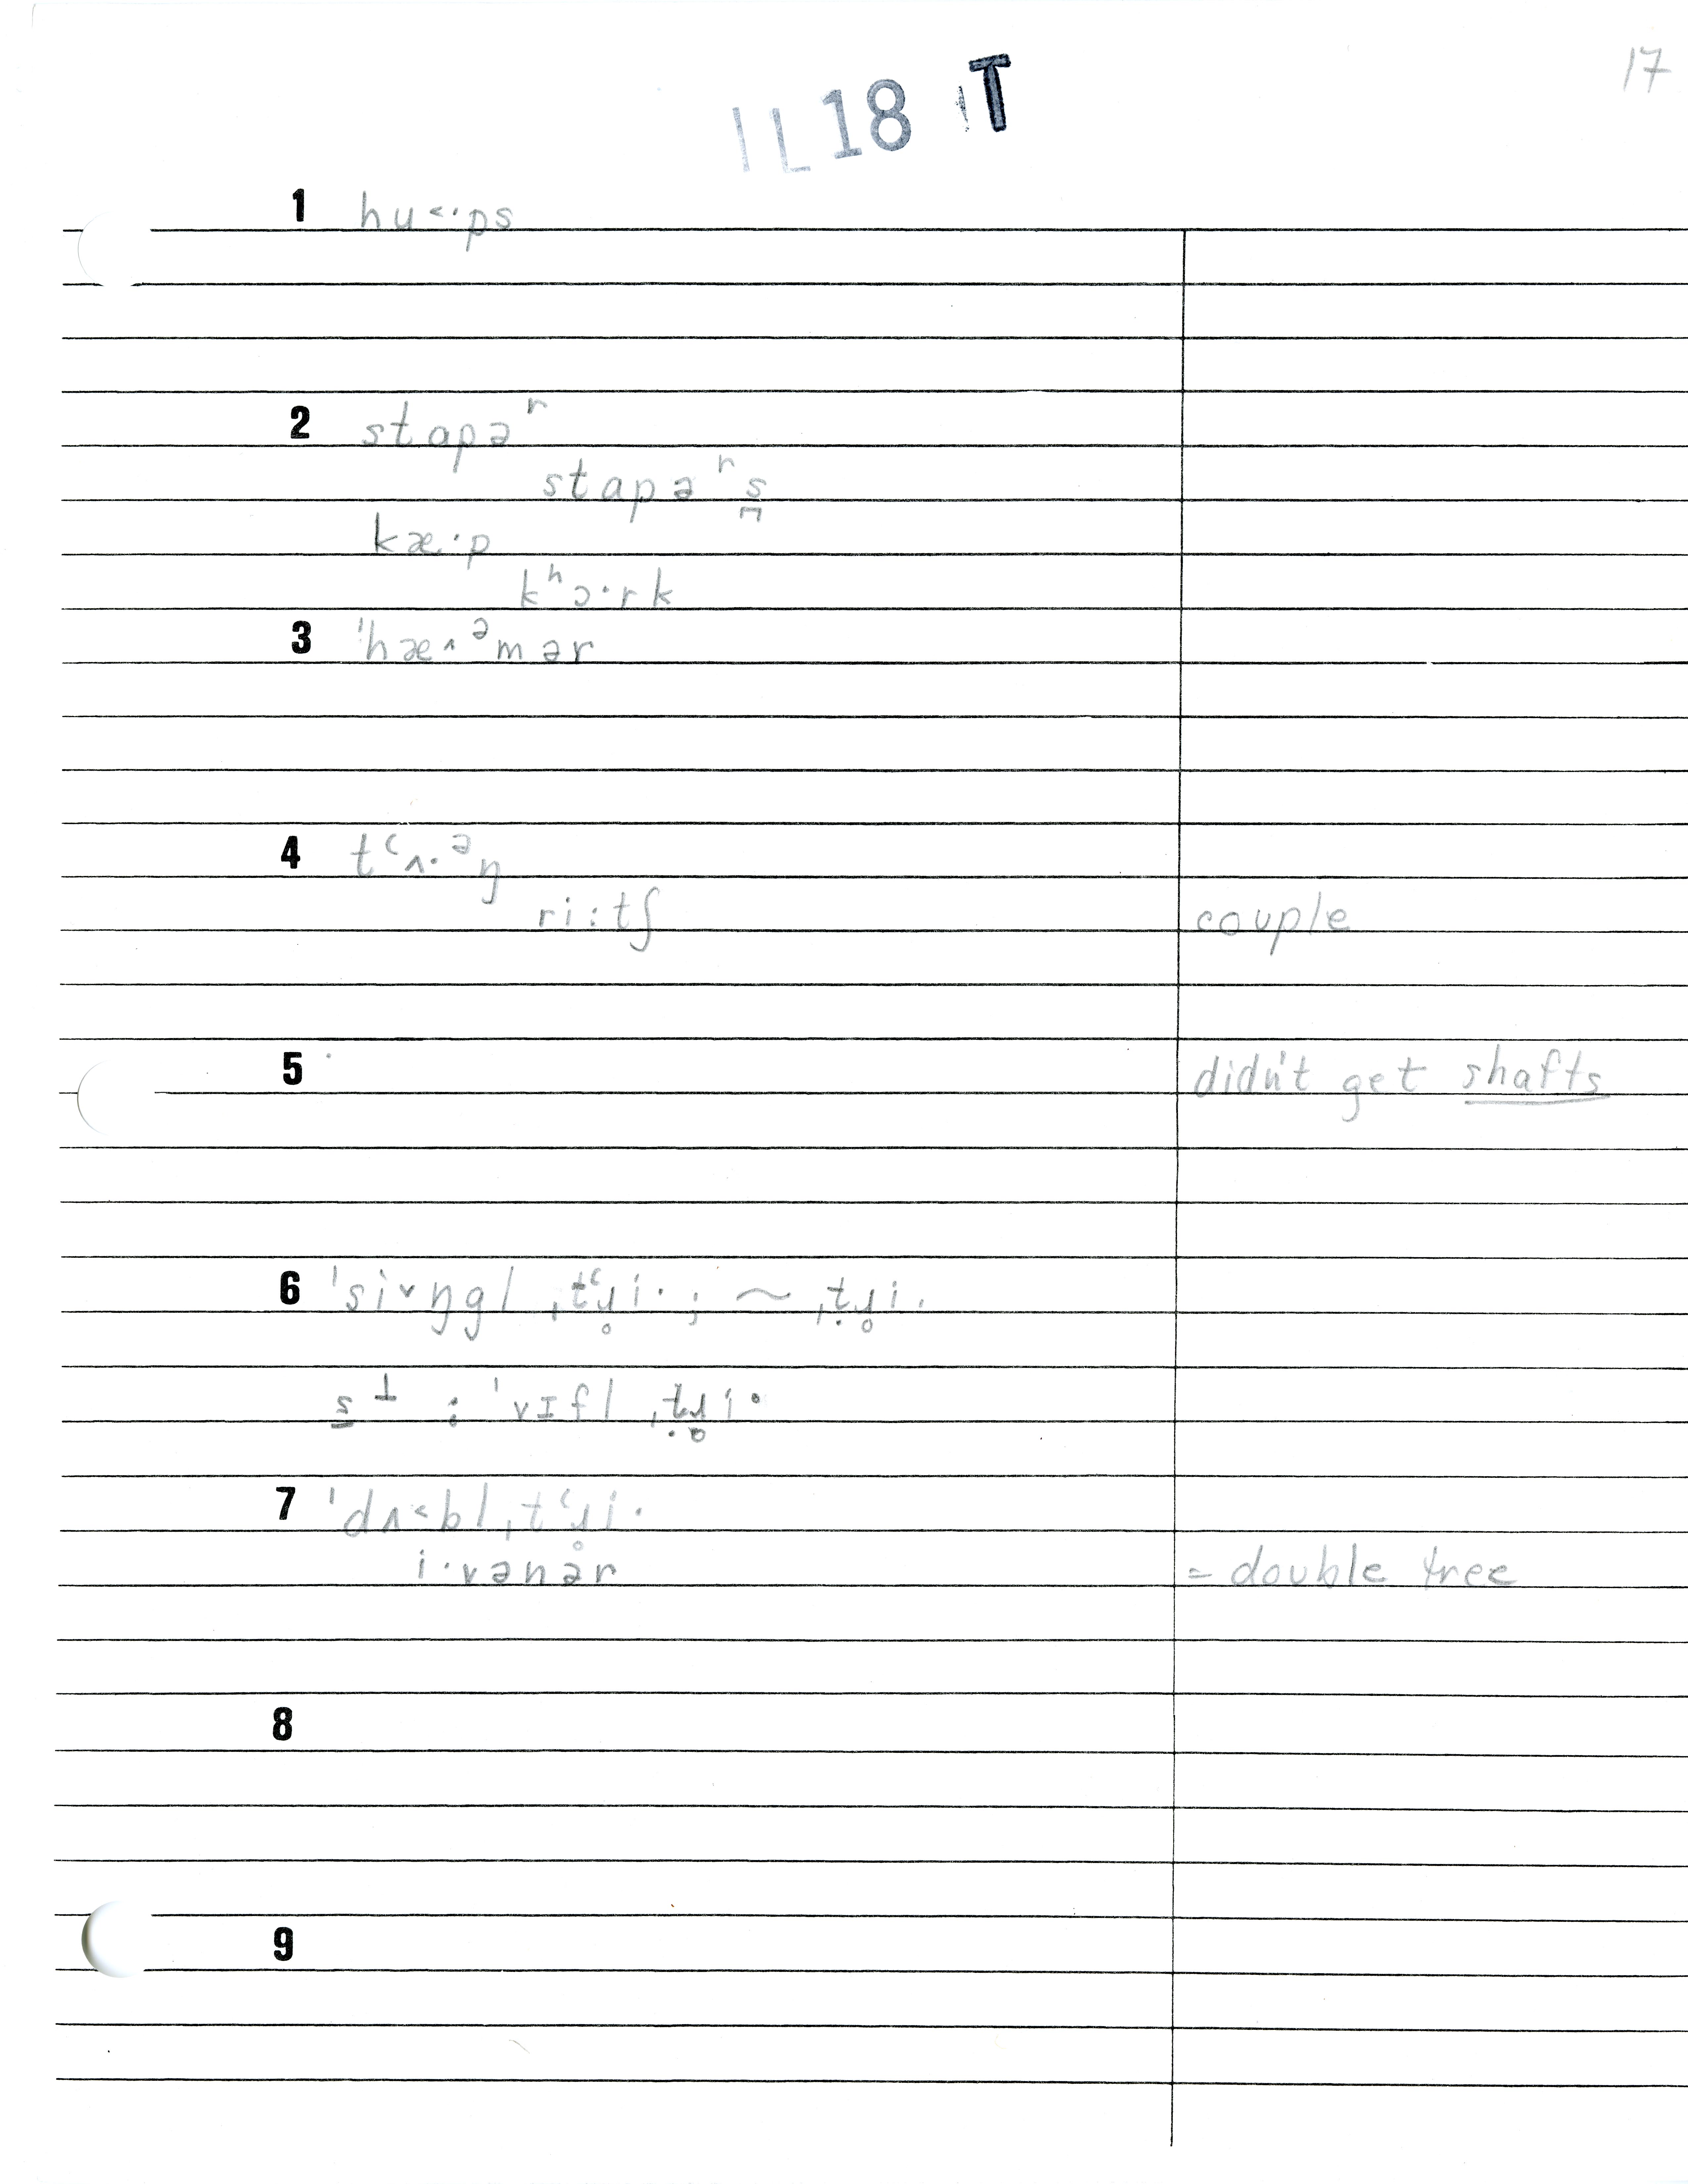 17
IL18 T
1 hu˂·ps
2 stapəʳ
stapəʳs̪
kæ·p
kʰɔ·rk
3 ˈhæ˄ᵊmər
4 tʿʌ·ᵊŋ
ri:tʃ couple
5 didn't get shafts
6 ˈsi˅ŋgl ˌtʿɹ̥i· ; ~ ˌṭɹ̥i·
s̲ ⊥ : ˈvɪfl ˌṭɹ̥i·
7 ˈdʌ˂bl ˌtʿɹ̥i·
i·vənər = double tree
8
9